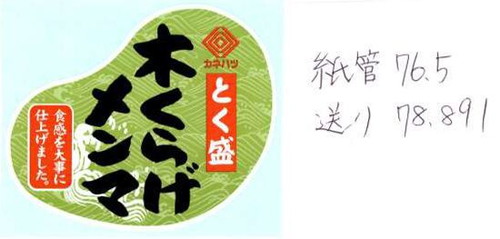 カネハツ
とく盛
木くらげ
メンマ
食感を大事に
仕上げました。
紙管 76.5
送り 78.891